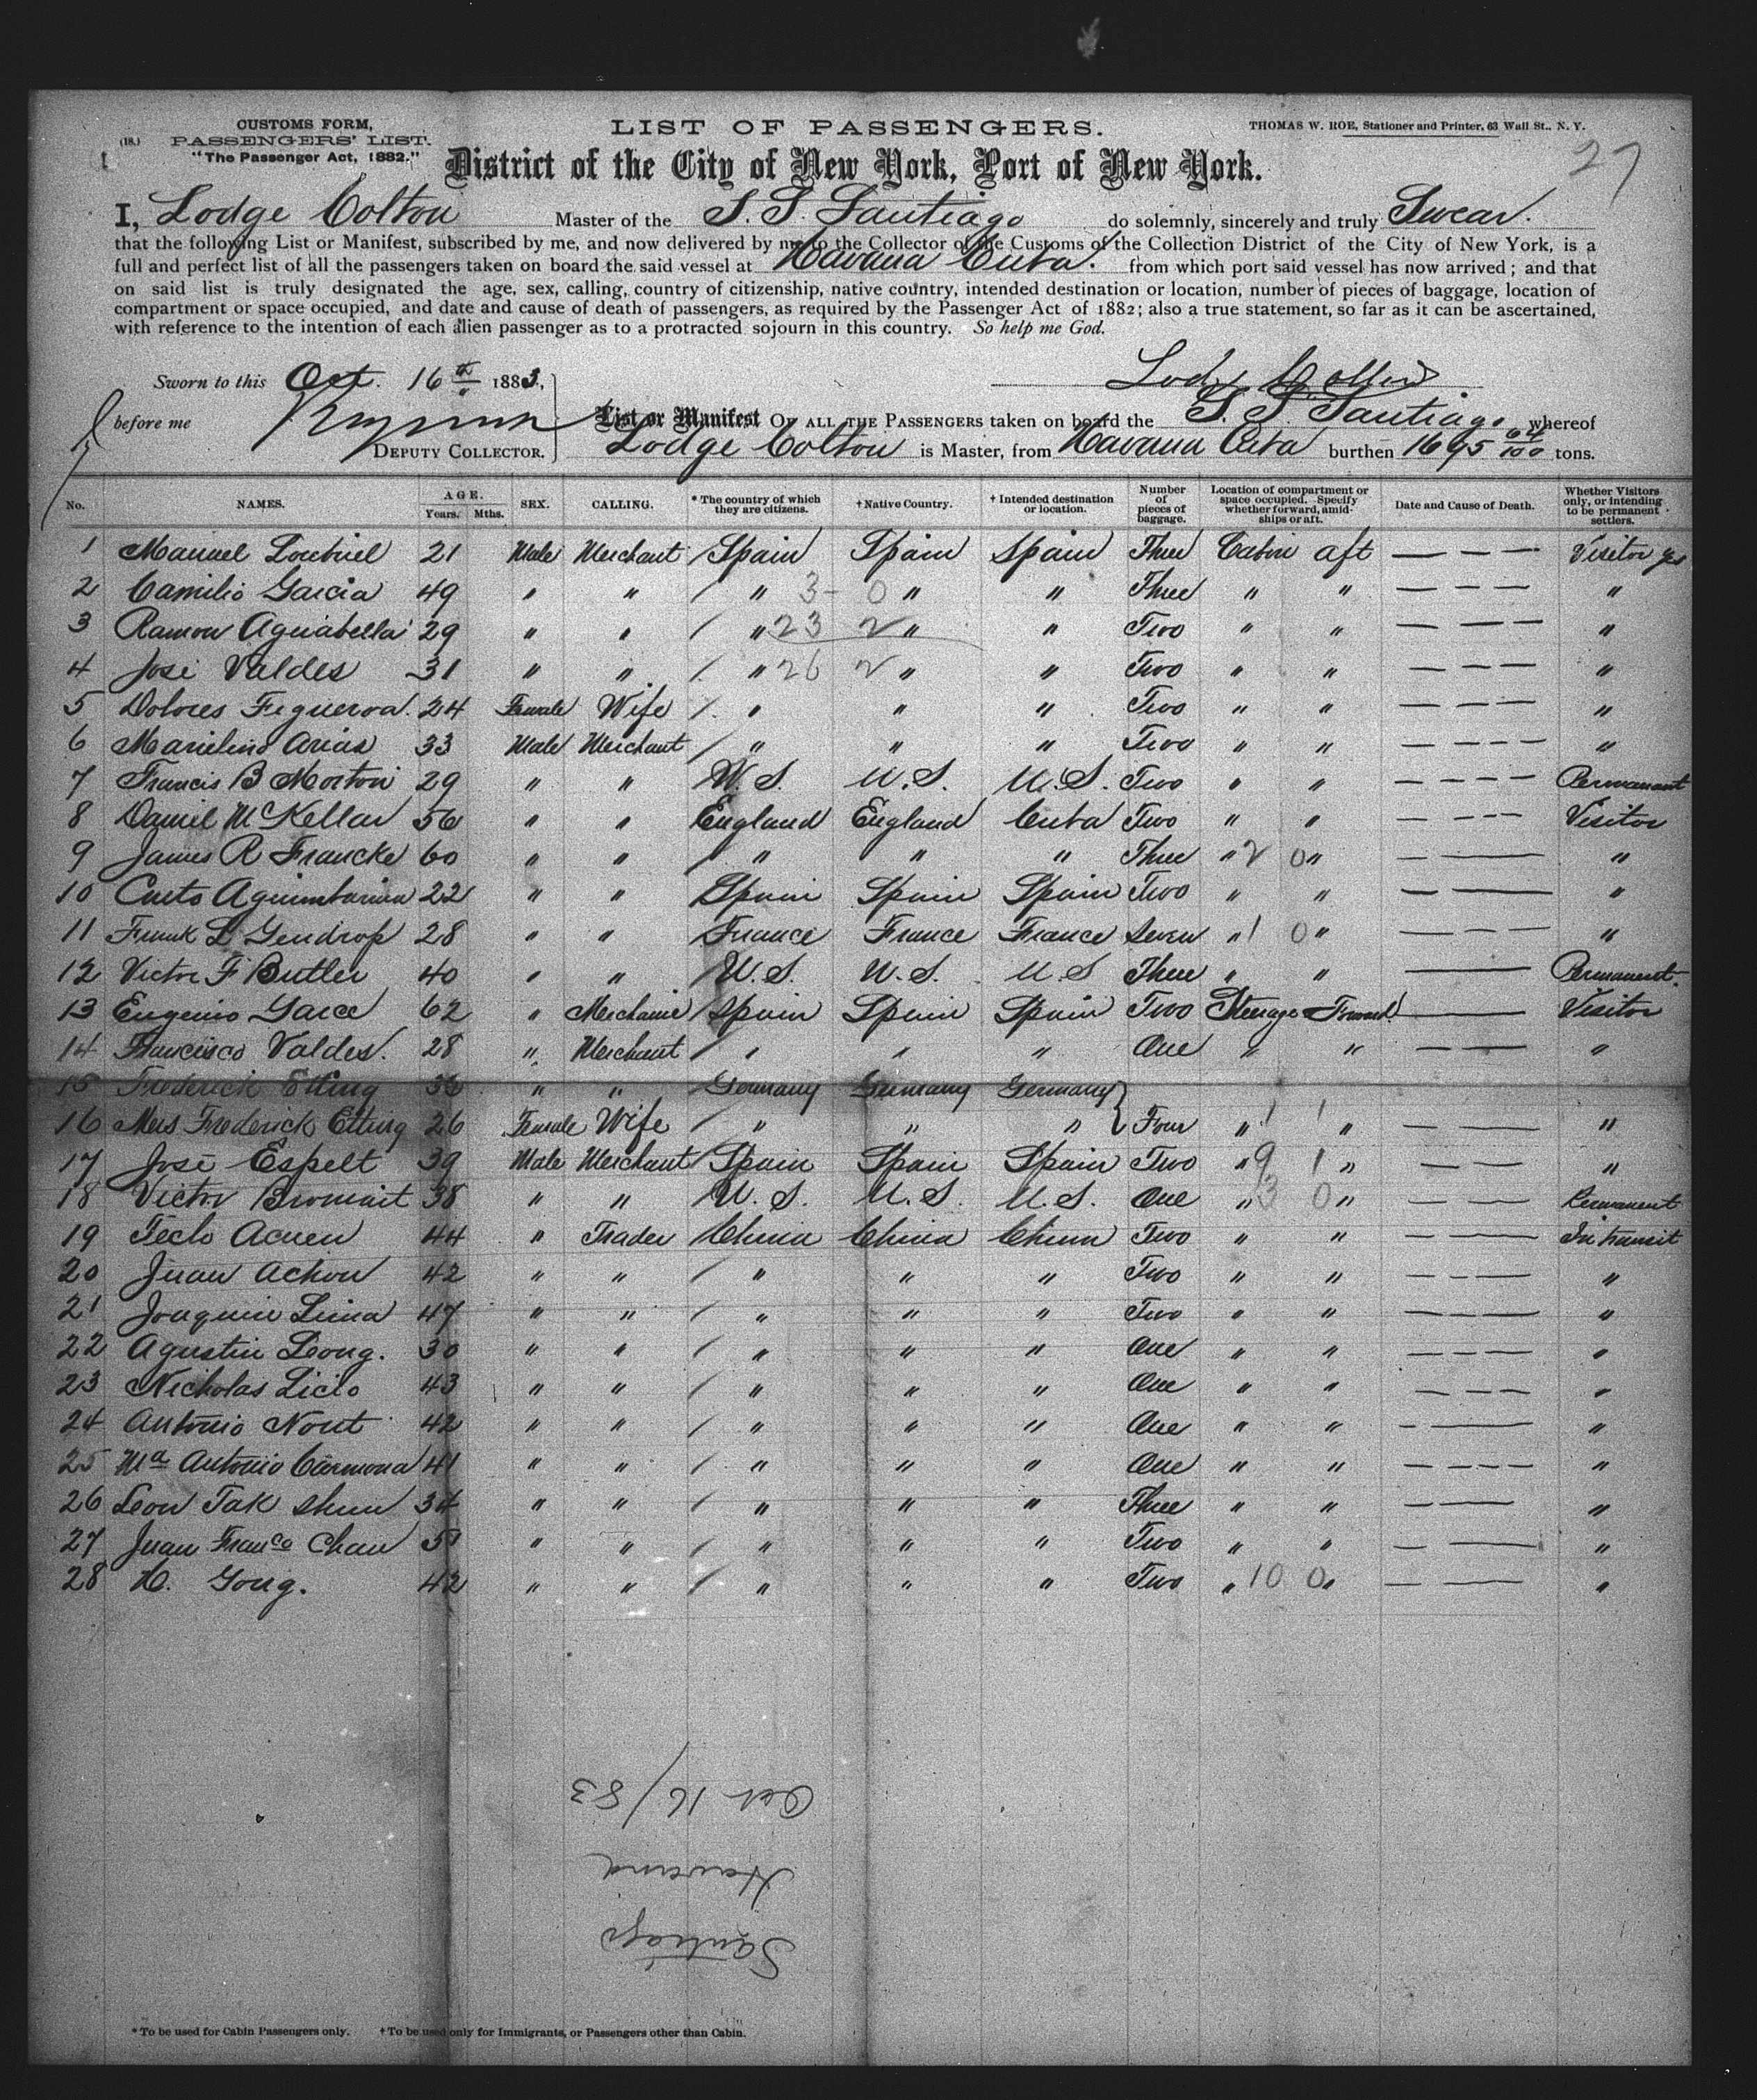 (18.)
CUSTOMS FORM,
PASSENGERS' LIST.
"The Passenger Act, 1882."
LIST OF PASSENGERS.
THOMAS W. ROE, Stationer and Printer, 63 Wall St., N. Y.
27
District of the City of New York, Port of New York.
I, Lodge Colton Master of the S. S. Santiago do solemnly, sincerely and truly Swear.
that the following List or Manifest, subscribed by me, and now delivered by me to the Collector of the Customs of the Collection District of the City of New York, is a
full and perfect list of all the passengers taken on board the said vessel at Havana Cuba. from which port said vessel has now arrived; and that
on said list is truly designated the age, sex, calling, country of citizenship, native country, intended destination or location, number of pieces of baggage, location of
compartment or space occupied, and date and cause of death of passengers, as required by the Passenger Act of 1882; also a true statement, so far as it can be ascertained,
with reference to the intention of each alien passenger as to a protracted sojourn in this country. So help me God.
Sworn to this Oct. 16th 1883,
Lodge Colton
before me
DEPUTY COLLECTOR.
List or Manifest OF ALL THE PASSENGERS taken on board the S. S. Santiago whereof
Lodge Colton is Master, from Havana Cuba burthen 1695 64/100 tons.
No. NAMES. AGE. Years. Mths. SEX. CALLING. * The country of which they are citizens. † Native Country. † Intended destination or location. Number of pieces of baggage. Location of compartment or space occupied. Specify whether forward, amidships or aft. Date and Cause of Death. Whether Visitors only, or intending to be permanent settlers.
1 Manuel Loubriel 21 Male Merchant Spain Spain Spain Three Cabin aft — — — Visitor yes
2 Camilio Garcia 49 " " / " 3 - 0 " " Three " " — — — "
3 Ramon Aguabella 29 " " / " 23 2 " " Two " " — — — "
4 José Valdes 31 " " / " 26 2 " " Two " " — — — "
5 Dolores Figueroa. 24 Female Wife / " " " Two " " — — — "
6 Marielino Arias 33 Male Merchant / " " " Two " " — — — "
7 Francis B Morton 29 " " U. S. U. S. U. S. Two " " — — — Permanent
8 Daniel McKellar 56 " " England England Cuba Two " " — — — Visitor
9 James R Francke 60 " " / " " " Three " 2 0 " — — "
10 Aguimbarina 22 " " Spain Spain Spain Two " " — — "
11 Frank L Gendrop 28 " " France France France Seven " 1 0 " — — — "
12 Victor F Butler 40 " " U. S. U. S. U. S Three " " — Permanent.
13 Eugenio Garce 62 " Mechanic Spain Spain Spain Two Steerage Forward — Visitor
14 Francisco Valdes. 28 " Merchant / " " " One " " — — "
15 Frederick Etting 36 " " Germany Germany Germany }
16 Mrs Frederick Etting 26 Female Wife / " " " } Four " 1 1 " — — "
17 José Espelt 39 Male Merchant Spain Spain Spain Two " 9 1 " — — "
18 Victor Bromait 38 " " U. S. U. S. U. S. One " 3 0 " — — Permanent
19 Teclo Acuen 44 " Trader China China China Two " " — — In transit
20 Juan Achon 42 " " / " " " Two " " — — — "
21 Joaquin Lima 47 " " / " " " Two " " — — — "
22 Agustin Leong. 30 " " / " " " One " " — — — "
23 Nicholas Liclo 43 " " / " " " One " " — — — "
24 Antonio Nout 42 " " / " " " One " " — — "
25 Ma Antonio Carmona 41 " " / " " " One " " — — — "
26 Leon Tak Shun 34 " " / " " " Three " " — — "
27 Juan Franco Chan 51 " " / " " " Two " " — — "
28 H. Gong. 42 " " / " " " Two " 10 0 " — — "
Santiago
Havana
Oct 16/83
* To be used for Cabin Passengers only. † To be used only for Immigrants, or Passengers other than Cabin.